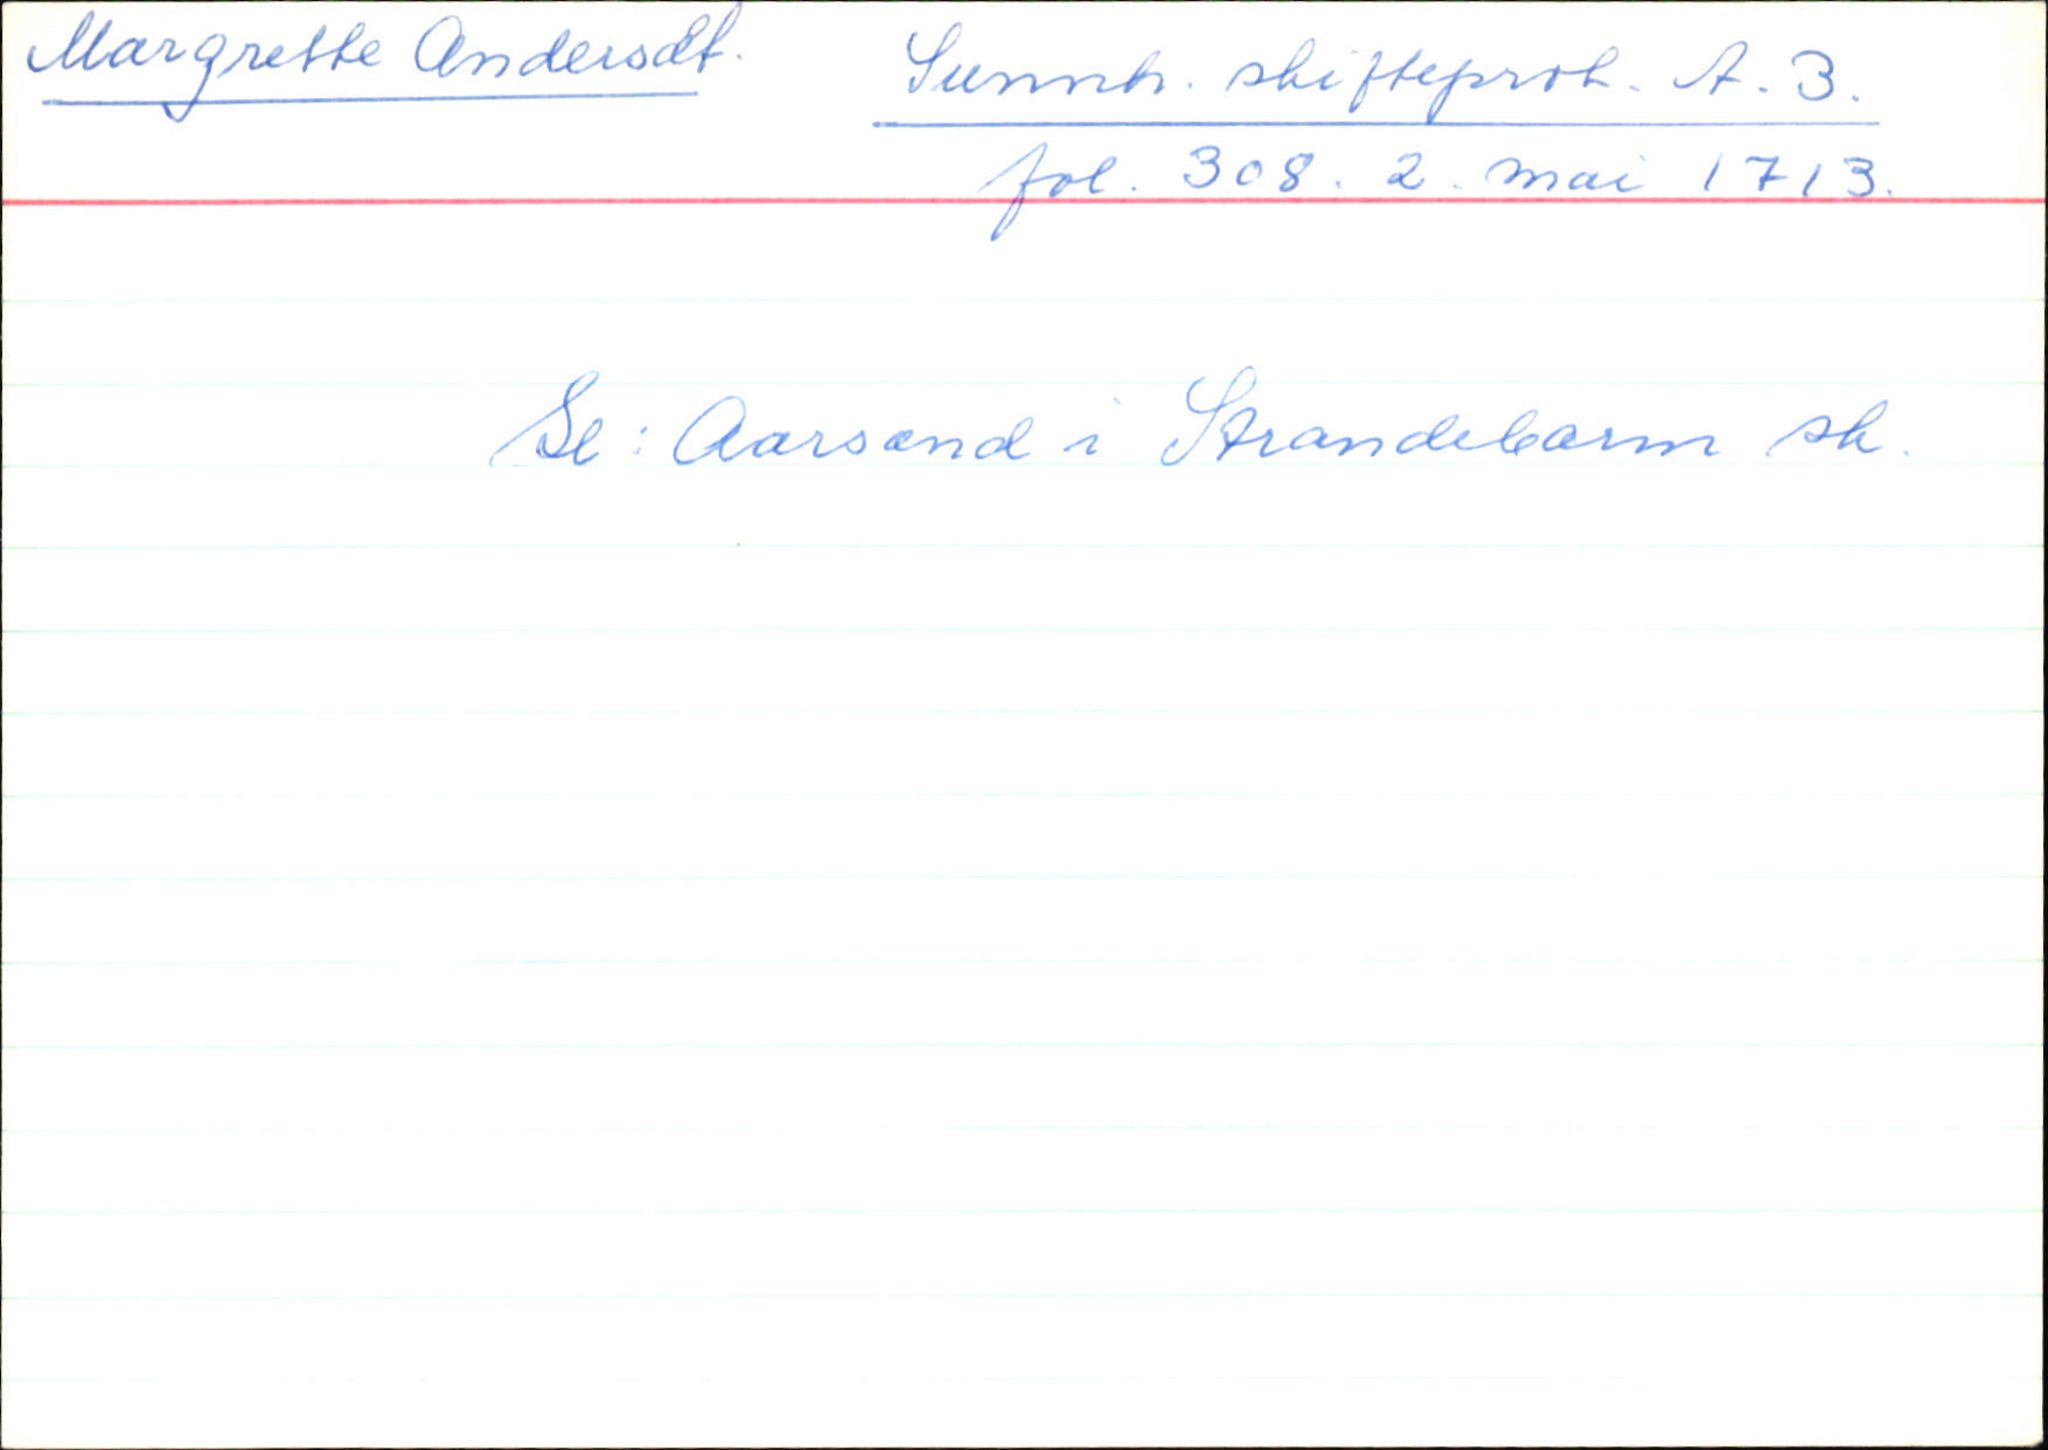 Margrette Andersdt.
Sunnh. skifteprot. A. 3.
fol. 308. 2. mai 1713.
Se: Aarsand i Strandebarm sk.